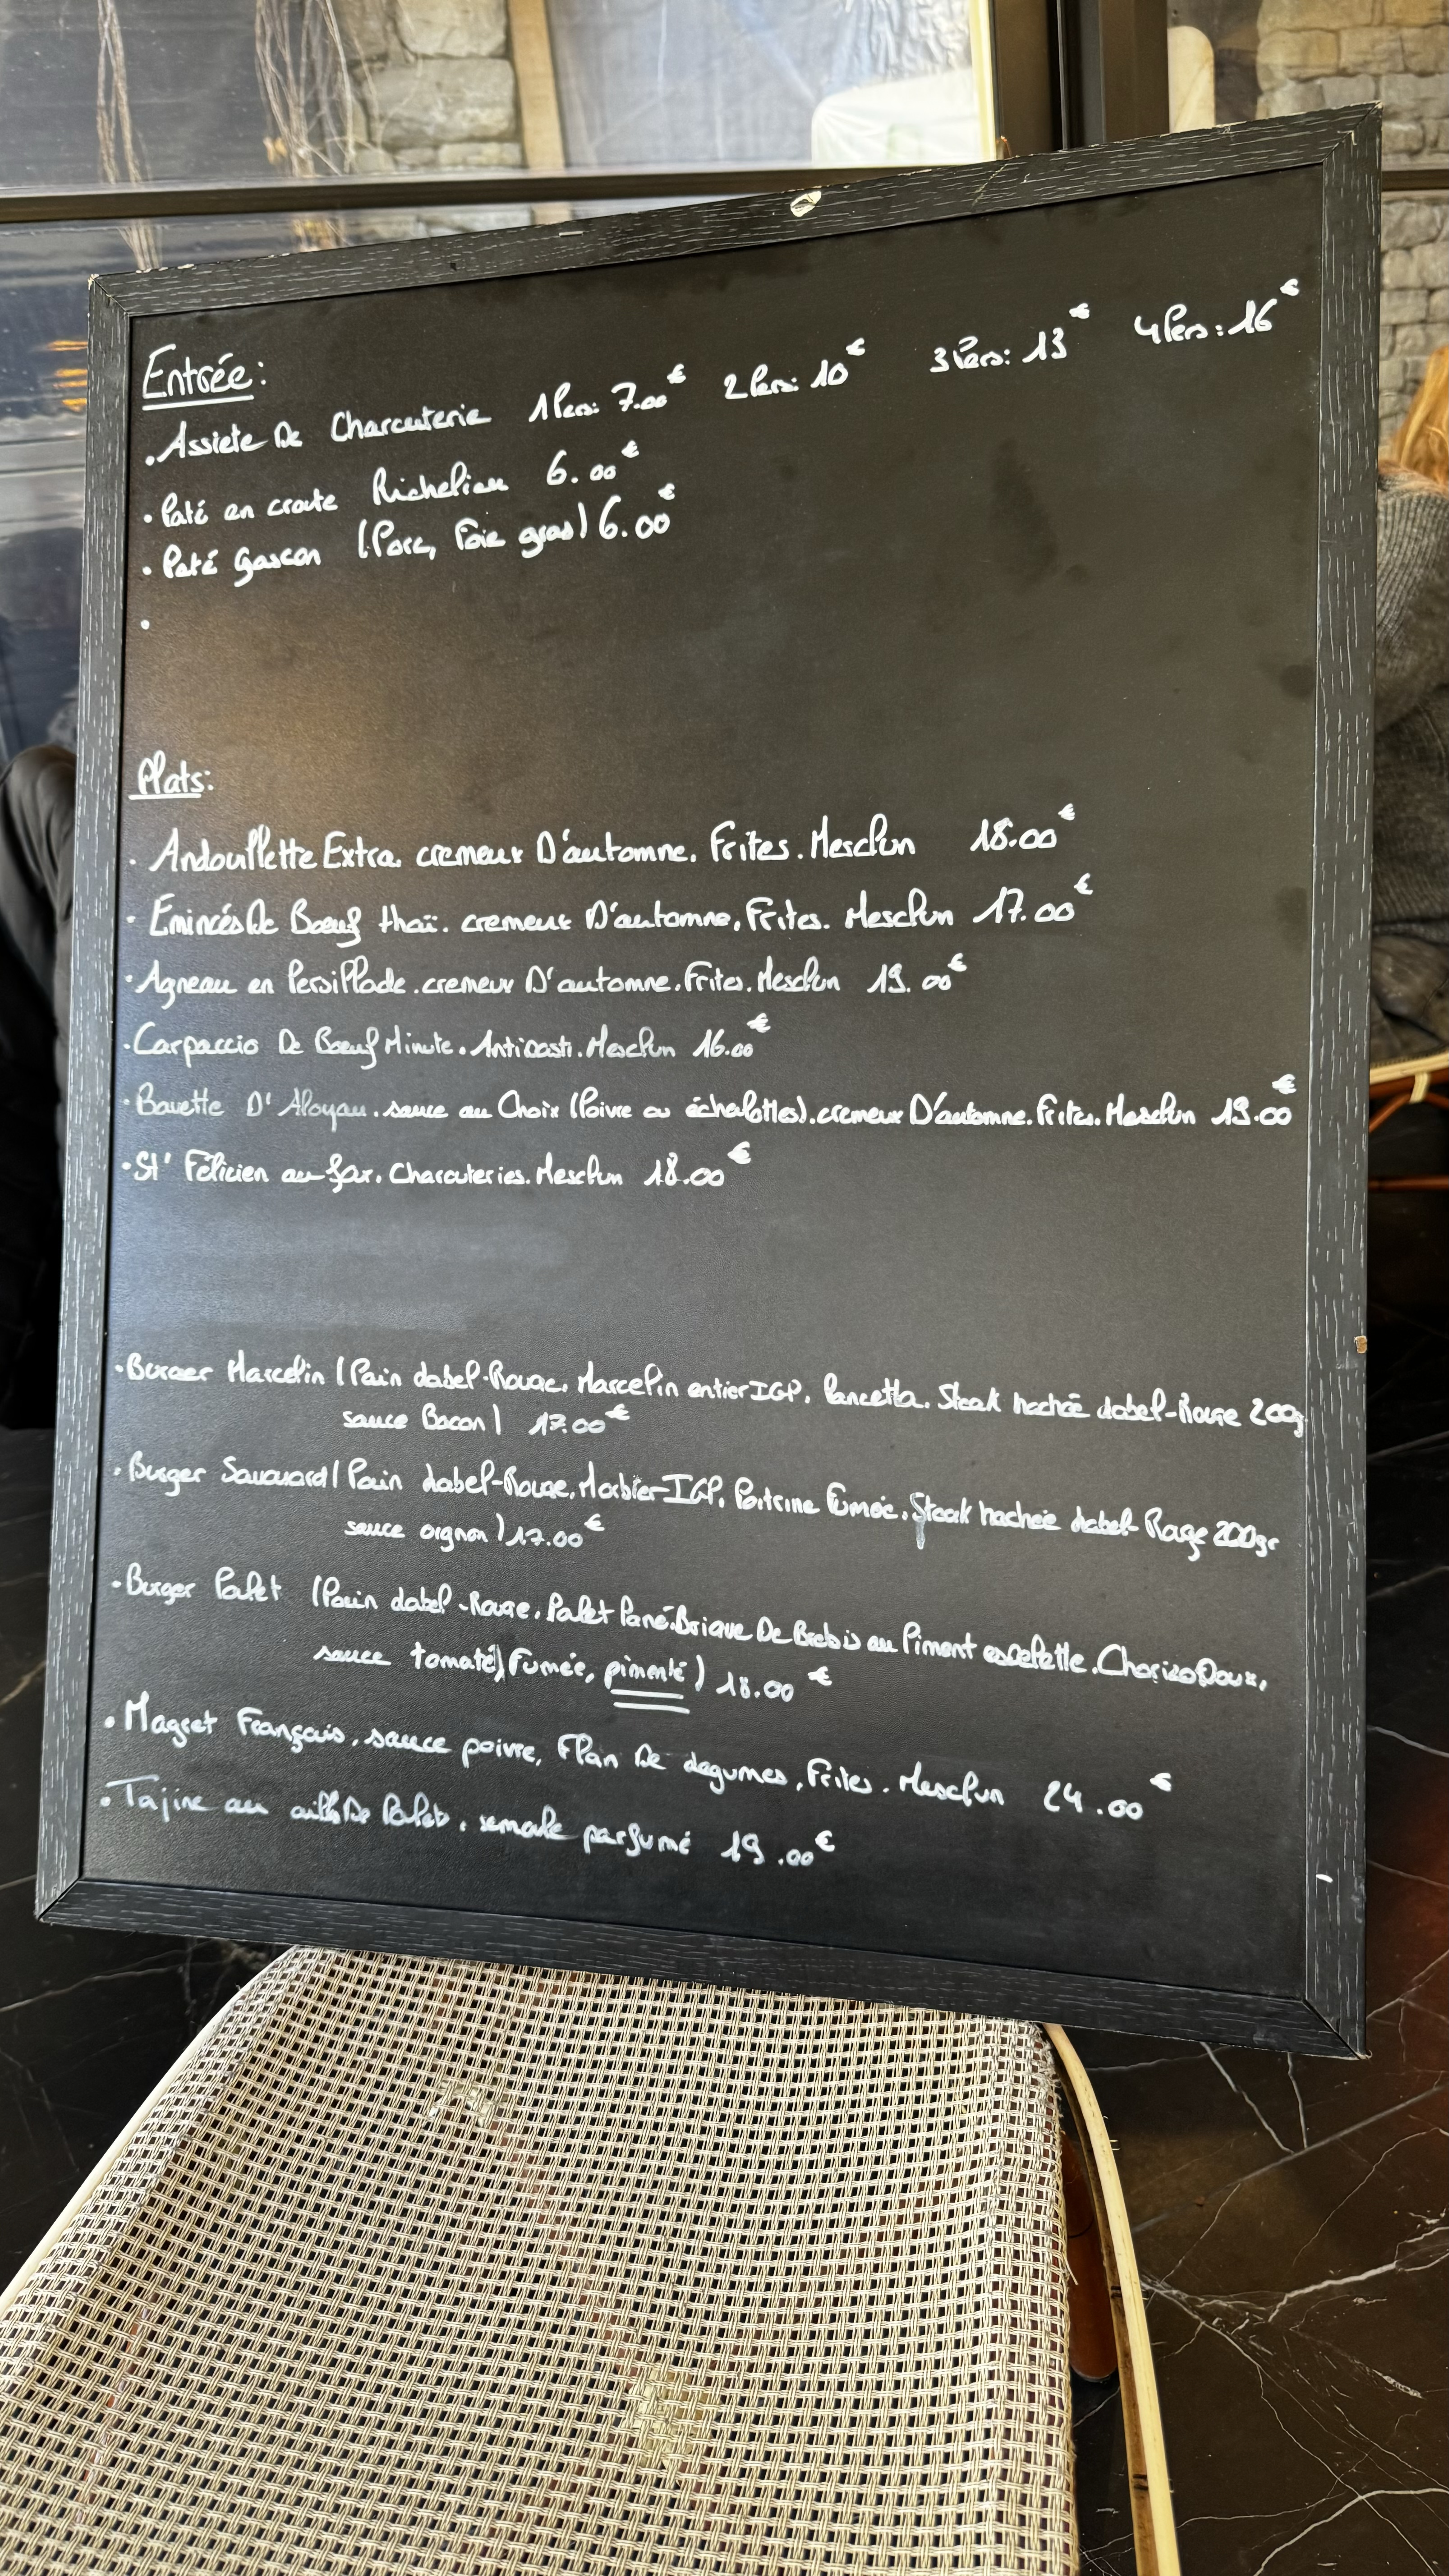 Entrée:
. Assiete De Charcuterie 1 Pers: 7.00€ 2 Pers: 10€ 3 Pers: 13€ 4 Pers: 16€
. Paté en croute Richelieu 6.00€
. Paté Gascon (Porc, Foie gras) 6.00€
.
Plats:
. Andouillette Extra. cremeux D'automne. Frites. Mesclun 18.00€
. Emincés De Bœuf thaï. cremeux D'automne, Frites. Mesclun 17.00€
. Agneau en Persillade. cremeux D'automne. Frites. Mesclun 19.00€
. Carpaccio De Bœuf Minute. Antipasti. Mesclun 16.00€
. Bavette D'Aloyau. sauce au Choix (Poivre ou échalottes). cremeux D'automne. Frites. Mesclun 19.00€
. St' Félicien au four. Charcuteries. Mesclun 18.00€
. Burger Marcelin (Pain Label-Rouge. Marcelin entier IGP. Pancetta. Steak hachée Label-Rouge 200g
sauce Bacon) 17.00€
. Burger Savoyard (Pain Label-Rouge, Morbier IGP. Poitrine Fumée. Steak hachée Label Rouge 200gr
sauce oignon) 17.00€
. Burger Poulet (Pain Label-Rouge. Poulet Pané. Brique De Brebis au Piment espelette. Chorizo Doux,
sauce tomate) Fumée, pimenté) 18.00€
. Magret Français. sauce poivre, Flan De Legumes, Frites. Mesclun 24.00€
. Tajine au De Poulet. semoule parfumé 19.00€